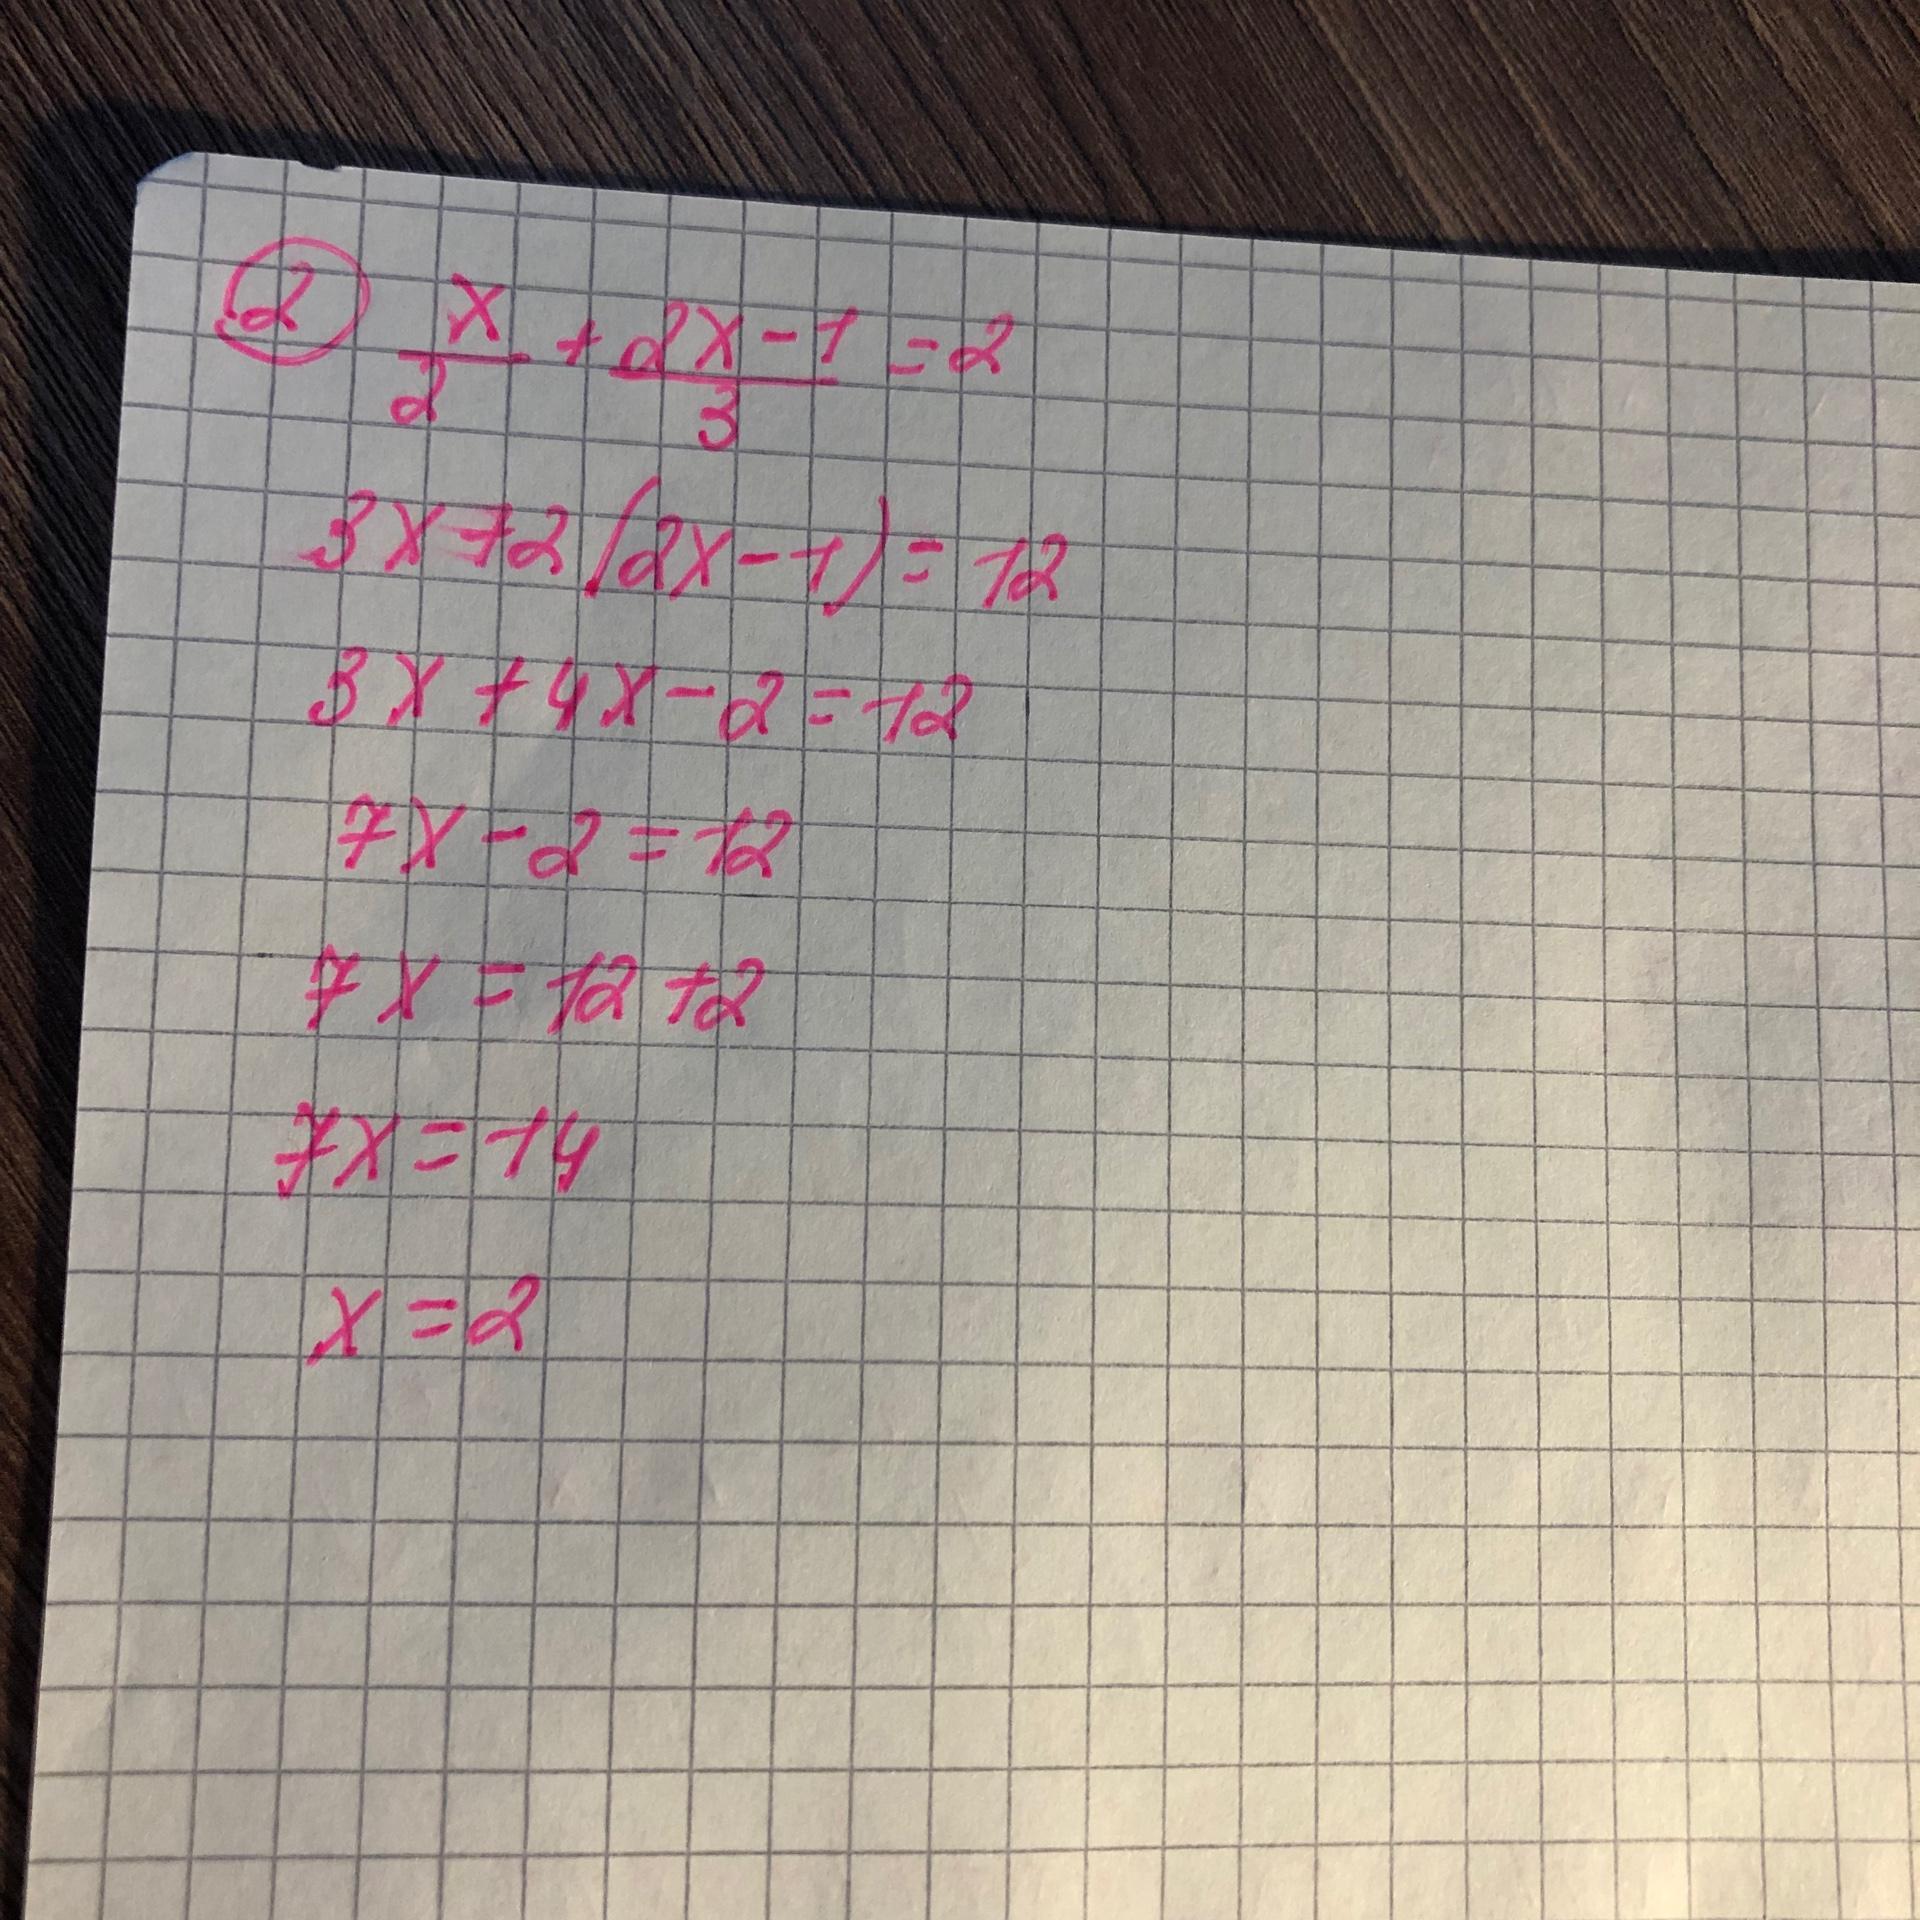 ② x/2 + 2x-1/3 = 2
3x+2(2x-1) = 12
3x+4x-2=12
7x-2=12
7x=12+2
7x=14
x=2